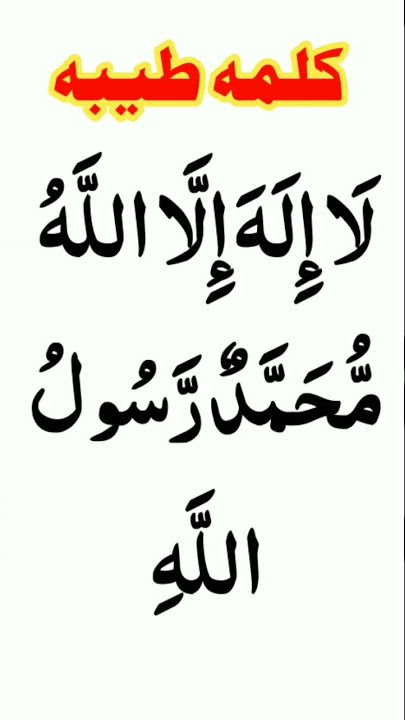 کلمه طیبه
لَا إِلَهَ إِلَّا اللَّهُ
مُّحَمَّدٌ رَّسُولُ
اللَّهِ